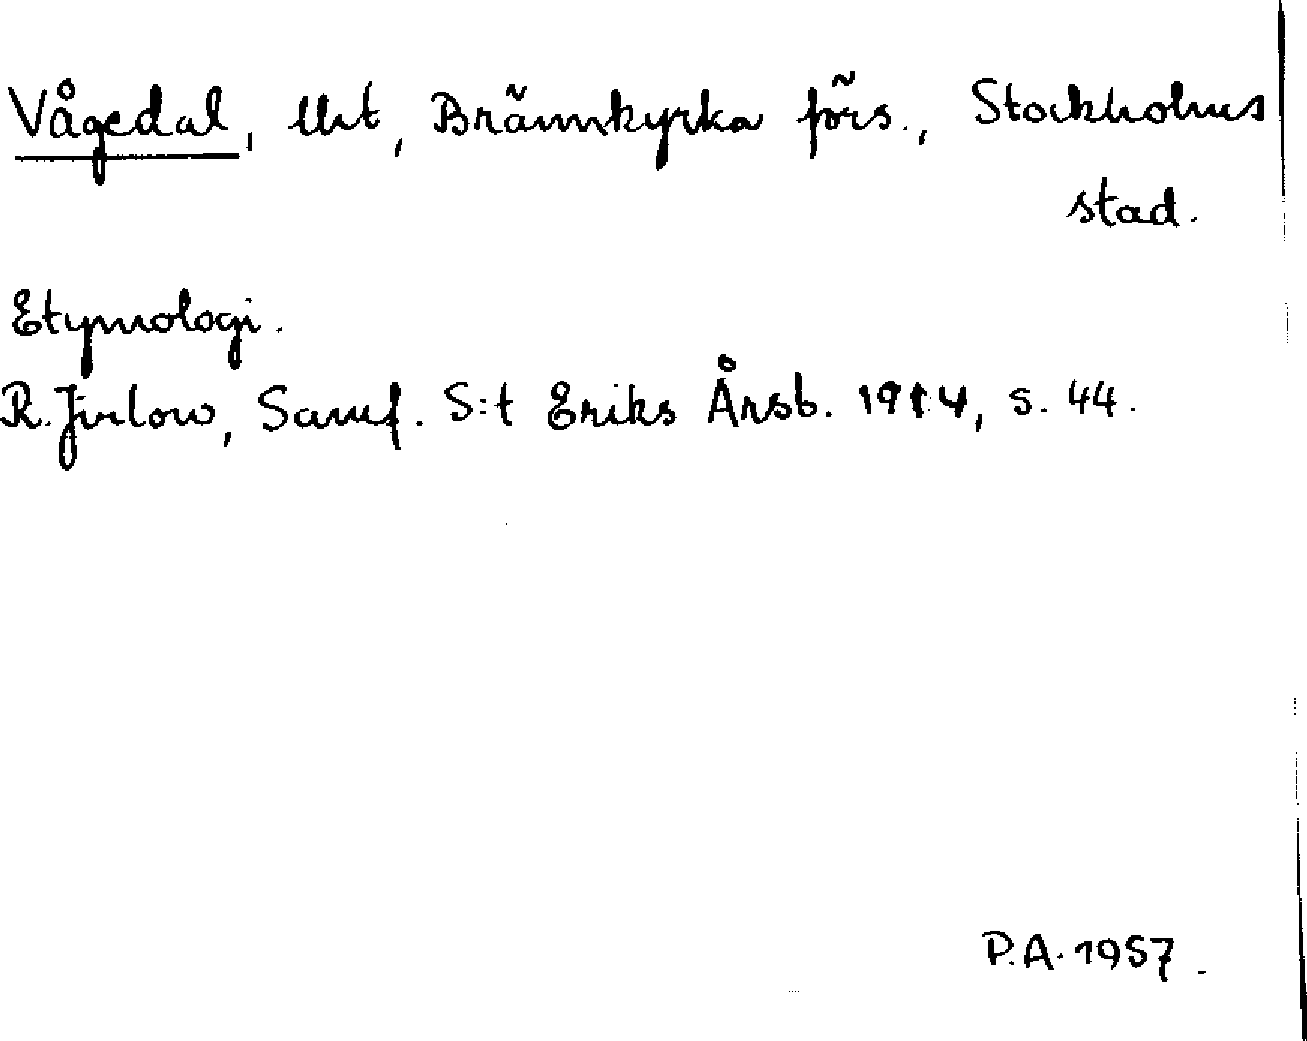 Vågedal, lht, Brännkyrka förs., Stockholms
stad.
Etymologi.
R. Jirlow, Samf. S:t Eriks Årsb. 1914, s. 44.
P.A. 1957.